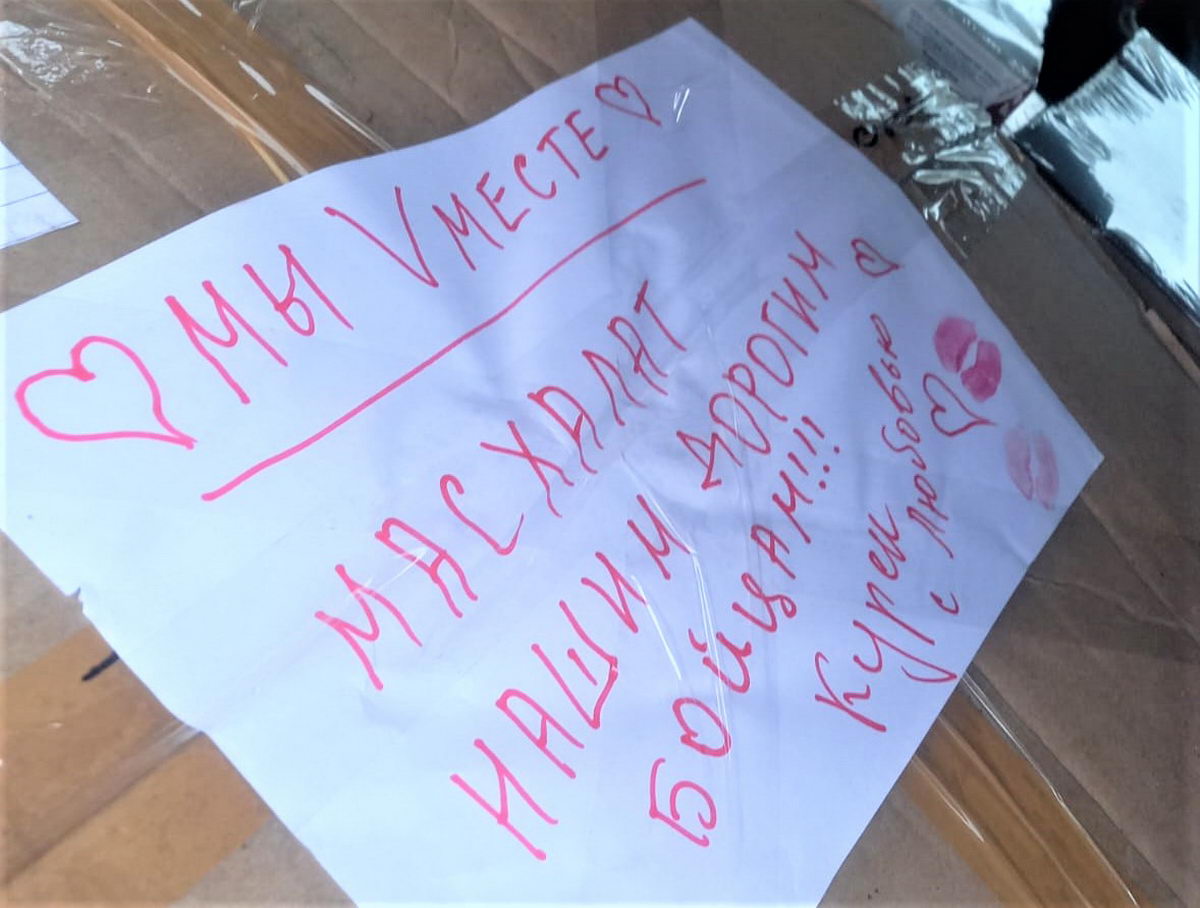 МЫ VМЕСТЕ
МАСХАЛАТ
НАШИМ ДОРОГИМ
БОЙЦАМ!!!!
Курен
с любовью